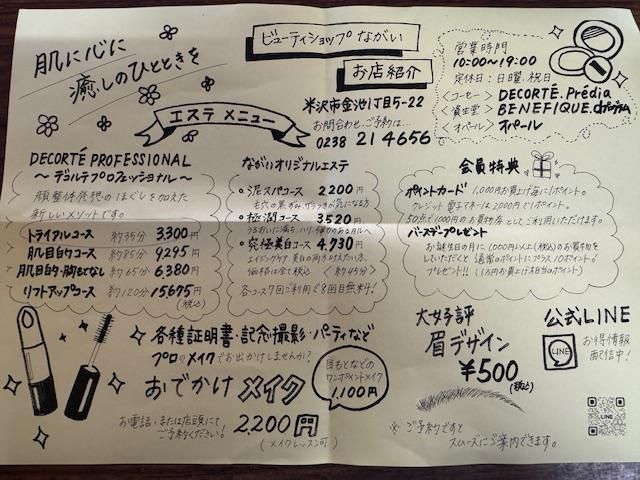 肌に心に
癒しのひとときを
ビューティショップ ながい
お店紹介
米沢市金池1丁目5-22
お問合わせ、ご予約は…
0238 21 4656
営業時間
10:00~19:00
定休日:日曜、祝日
〈コーセー〉 DECORTÉ. Prédia
〈資生堂〉 BENEFIQUE.
〈オパール〉 オパール
エステ メニュー
DECORTÉ PROFESSIONAL
～デコルテプロフェッショナル～
顔整体発想のほぐしを加えた
新しいメソッドです。
トライアルコース 約35分 3,300円
肌目的コース 約85分 9,295円
肌目的・胸もてなし 約65分 6,380円
リフトアップコース 約120分 15,675円
(税込)
ながいオリジナルエステ
・泥スパコース 2,200円
毛穴の黒ずみ、ザラつきが気になる方
・極潤コース 3,520円
うるおいに満ち、ハリ、弾力のある肌へ
・究極美白コース 4,730円
エイジングケア、美白の両方叶えたい方、
価格は全て税込 〈約45分〉
各コース7回ご利用で8回目無料!
会員特典
ポイントカード 1,000円お買上げ毎に1ポイント。
クレジット、電子マネーは2,000円で1ポイント。
50点で1,000円のお買物券としてご利用いただけます。
バースデープレゼント
お誕生日の月に、1,000円以上(税込)のお買物を
していただくと 通常のポイントにプラス10ポイントが
プレゼント!! (1万円お買上げ本日のポイント)
各種証明書・記念・撮影・パーティなど
プロのメイクでお出かけしませんか?
おでかけメイク
お電話、または店頭にて
ご予約ください!
2,200円
(メイクレッスン可)
目もとなどの
ワンポイントメイク
1,100円
大好評
眉デザイン
¥500
(税込)
※ご予約ですと
スムーズにご案内できます。
公式LINE
LINE
お得な情報
配信中!